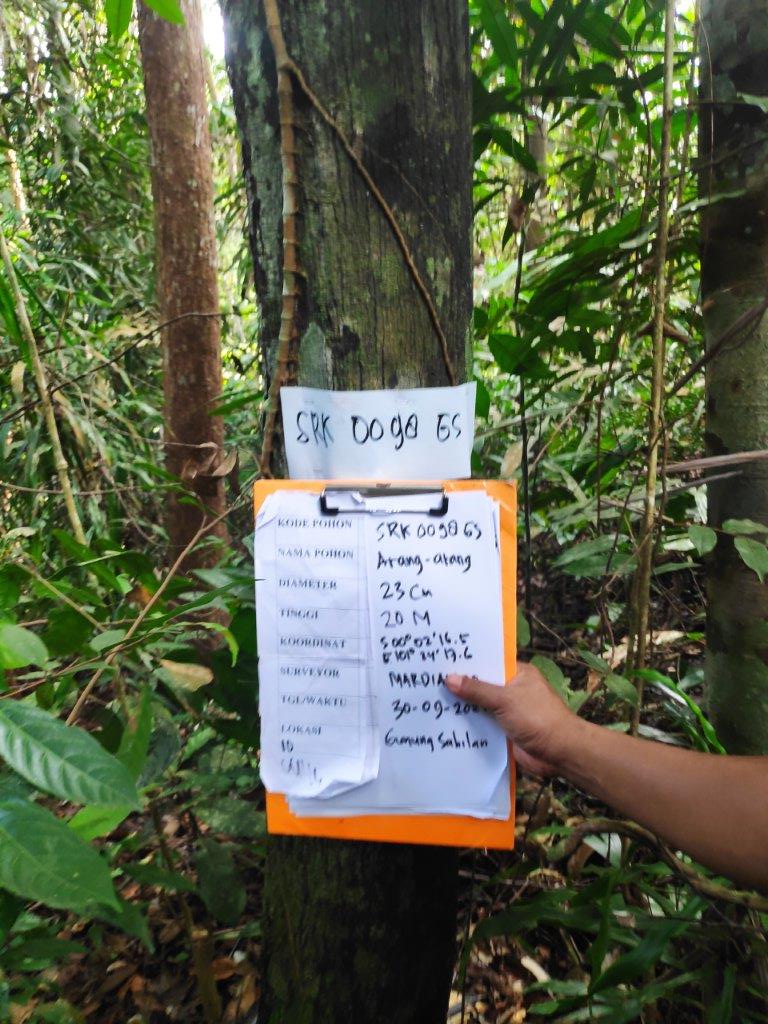 SRK 0098 GS
KODE POHON SRK 0098 GS
NAMA POHON Arang-arang
DIAMETER 23 Cm
TINGGI 20 M
KOORDINAT S 00° 02' 16.5
E 101° 24' 17.6
SURVEYOR
TGL/WAKTU 30-09-
LOKASI Gunung Sahilan
ID